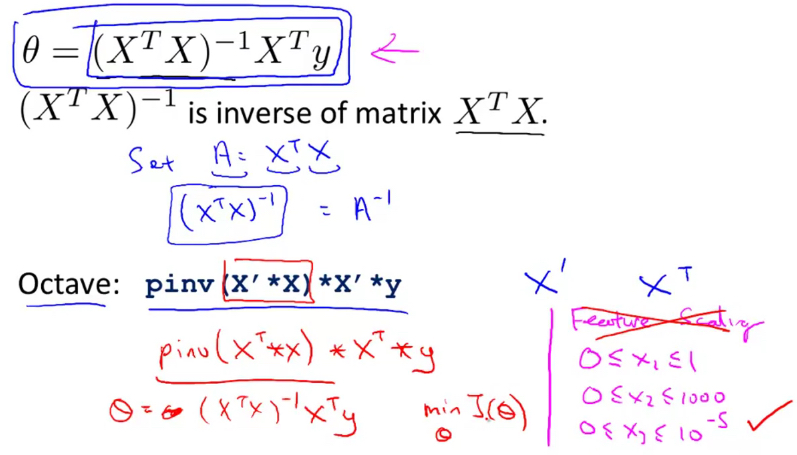 θ = (XᵀX)⁻¹Xᵀy
(XᵀX)⁻¹ is inverse of matrix XᵀX.
Set A = XᵀX
(XᵀX)⁻¹ = A⁻¹
Octave: pinv(X'*X)*X'*y
X' Xᵀ
pinv(Xᵀ*X) * Xᵀ * y
θ = (XᵀX)⁻¹Xᵀy
min J(θ)
θ
Feature Scaling
0 ≤ x₁ ≤ 1
0 ≤ x₂ ≤ 1000
0 ≤ x₃ ≤ 10⁻⁵